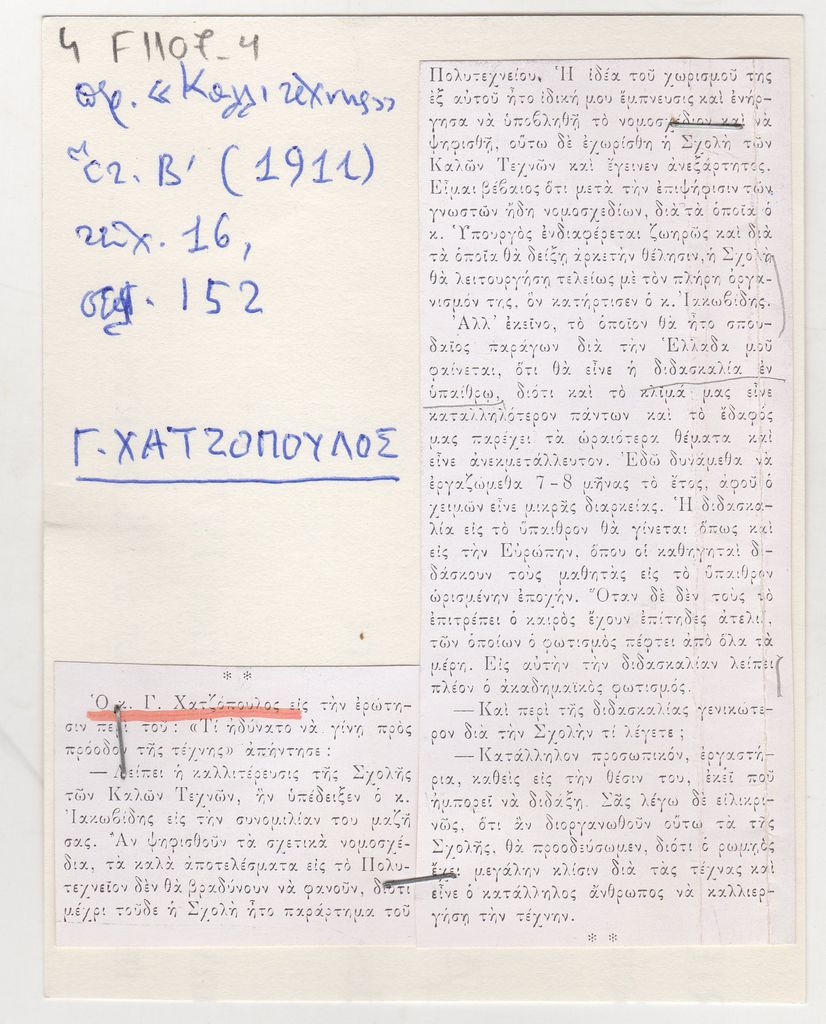 4 F1107_4
περ. «Καλλιτέχνης»
ἔτ. Β' (1911)
τεῦχ. 16,
σελ. 152
Γ. ΧΑΤΖΟΠΟΥΛΟΣ
* *
Ὁ κ. Γ. Χατζόπουλος εἰς τὴν ἐρώτη-
σιν περὶ τοῦ: «Τί ἠδύνατο νὰ γίνῃ πρὸς
πρόοδον τῆς τέχνης» ἀπήντησε:
— Λείπει ἡ καλλιτέρευσις τῆς Σχολῆς
τῶν Καλῶν Τεχνῶν, ἣν ὑπέδειξεν ὁ κ.
Ἰακωβίδης εἰς τὴν συνομιλίαν του μαζῆ
σας. Ἂν ψηφισθοῦν τὰ σχετικὰ νομοσχέ-
δια, τὰ καλὰ ἀποτελέσματα εἰς τὸ Πολυ-
τεχνεῖον δὲν θὰ βραδύνουν νὰ φανοῦν, διότι
μέχρι τοῦδε ἡ Σχολὴ ἦτο παράρτημα τοῦ
Πολυτεχνείου. Ἡ ἰδέα τοῦ χωρισμοῦ της
ἐξ αὐτοῦ ἦτο ἰδική μου ἔμπνευσις καὶ ἐνήρ-
γησα νὰ ὑποβληθῇ τὸ νομοσχέδιον καὶ νὰ
ψηφισθῇ, οὕτω δὲ ἐχωρίσθη ἡ Σχολὴ τῶν
Καλῶν Τεχνῶν καὶ ἔγεινεν ἀνεξάρτητος.
Εἶμαι βέβαιος ὅτι μετὰ τὴν ἐπιψήφισιν τῶν
γνωστῶν ἤδη νομοσχεδίων, διὰ τὰ ὁποῖα ὁ
κ. Ὑπουργὸς ἐνδιαφέρεται ζωηρῶς καὶ διὰ
τὰ ὁποῖα θὰ δείξῃ ἀρκετὴν θέλησιν, ἡ Σχολὴ
θὰ λειτουργήσῃ τελείως μὲ τὸν πλήρη ὀργα-
νισμόν της, ὃν κατήρτισεν ὁ κ. Ἰακωβίδης.
Ἀλλ' ἐκεῖνο, τὸ ὁποῖον θὰ ἦτο σπου-
δαῖος παράγων διὰ τὴν Ἑλλάδα μοῦ
φαίνεται, ὅτι θὰ εἶνε ἡ διδασκαλία ἐν
ὑπαίθρῳ, διότι καὶ τὸ κλῖμά μας εἶνε
καταλληλότερον πάντων καὶ τὸ ἔδαφός
μας παρέχει τὰ ὡραιότερα θέματα καὶ
εἶνε ἀνεκμετάλλευτον. Ἐδῶ δυνάμεθα νὰ
ἐργαζώμεθα 7-8 μῆνας τὸ ἔτος, ἀφοῦ ὁ
χειμὼν εἶνε μικρᾶς διαρκείας. Ἡ διδασκα-
λία εἰς τὸ ὕπαιθρον θὰ γίνεται ὅπως καὶ
εἰς τὴν Εὐρώπην, ὅπου οἱ καθηγηταὶ δι-
δάσκουν τοὺς μαθητὰς εἰς τὸ ὕπαιθρον
ὡρισμένην ἐποχήν. Ὅταν δὲ δὲν τοὺς τὸ
ἐπιτρέπει ὁ καιρὸς ἔχουν ἐπίτηδες ἀτελιέ,
τῶν ὁποίων ὁ φωτισμὸς πέφτει ἀπὸ ὅλα τὰ
μέρη. Εἰς αὐτὴν τὴν διδασκαλίαν λείπει
πλέον ὁ ἀκαδημαϊκὸς φωτισμός.
— Καὶ περὶ τῆς διδασκαλίας γενικώτε-
ρον διὰ τὴν Σχολὴν τί λέγετε;
— Κατάλληλον προσωπικόν, ἐργαστή-
ρια, καθεὶς εἰς τὴν θέσιν του, ἐκεῖ ποῦ
ἠμπορεῖ νὰ διδάξῃ. Σᾶς λέγω δὲ εἰλικρι-
νῶς, ὅτι ἂν διοργανωθοῦν οὕτω τὰ τῆς
Σχολῆς, θὰ προοδεύσωμεν, διότι ὁ ρωμηὸς
ἔχει μεγάλην κλίσιν διὰ τὰς τέχνας καὶ
εἶνε ὁ κατάλληλος ἄνθρωπος νὰ καλλιερ-
γήσῃ τὴν τέχνην.
* *